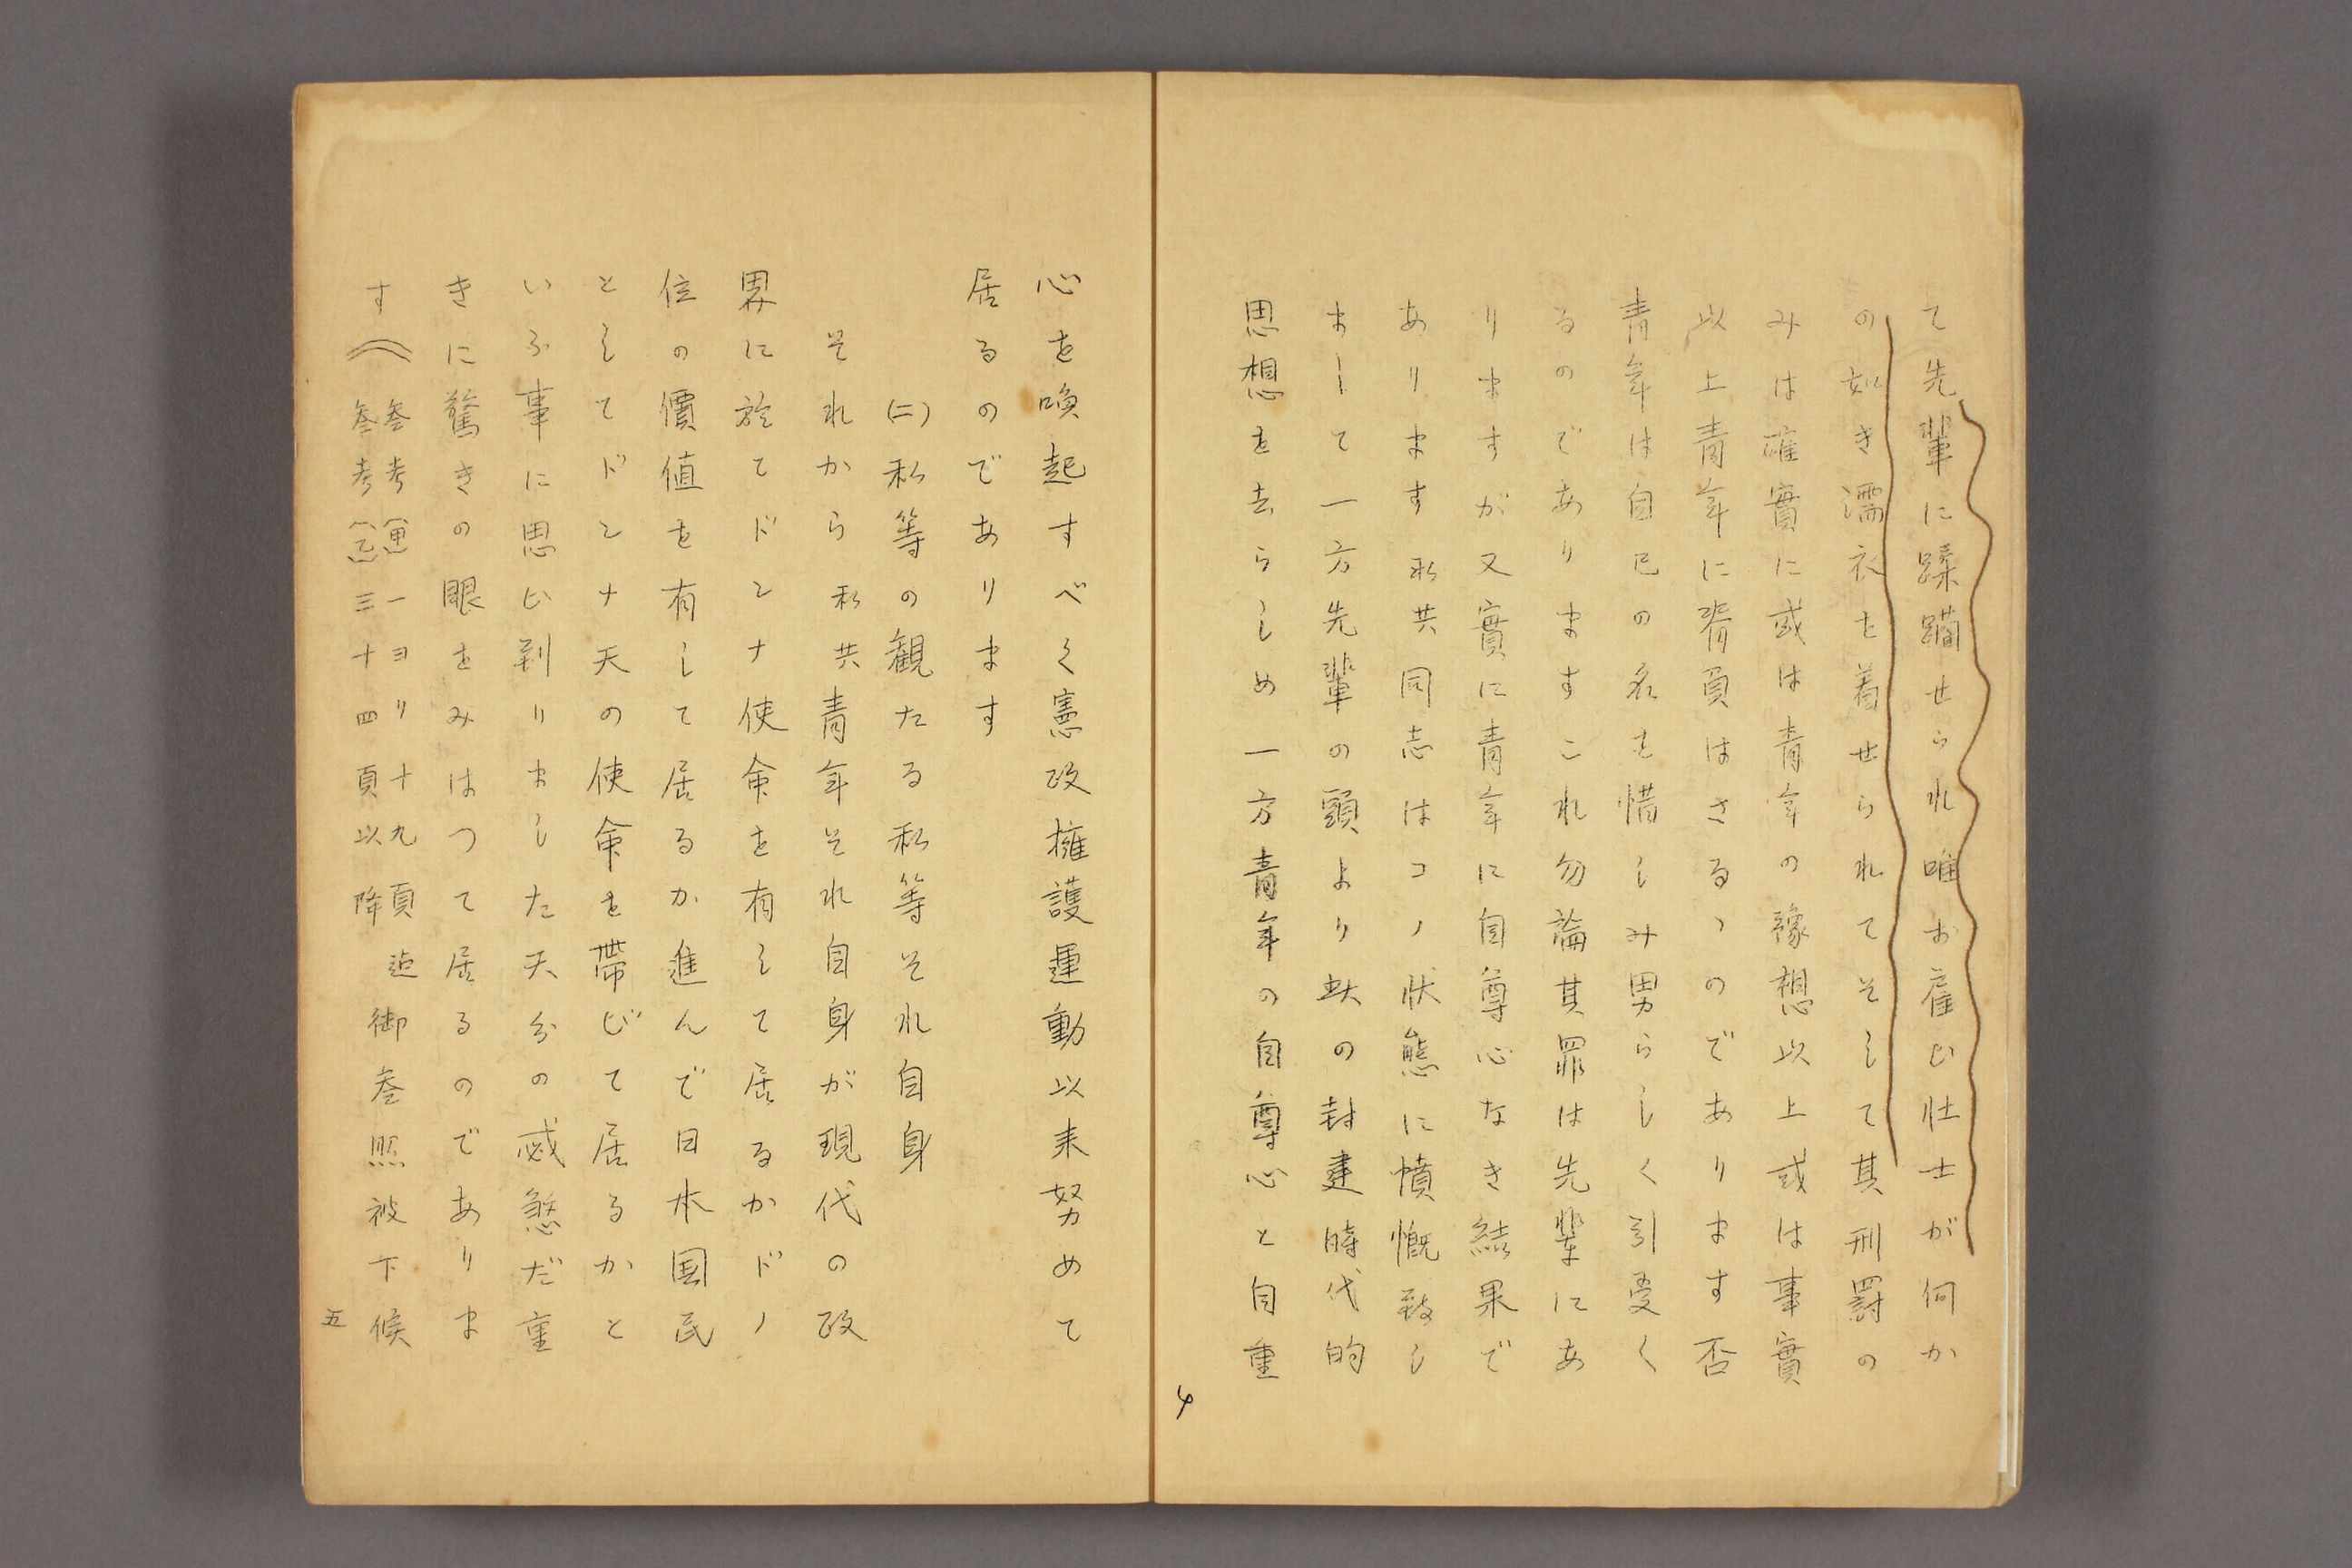 て先輩に蹂躙せられ唯お雇ひ壮士が何か
の如き濡衣を着せられてそして其刑罰の
みは確實に或は青年の豫想以上或は事實
以上青年に脊負はさるゝのであります否
青年は自己の名を惜しみ男らしく引受く
るのでありますこれ勿論其罪は先輩にあ
りますが又實に青年に自尊心なき結果で
あります私共同志はコノ状態に憤慨致し
まして一方先輩の頭より此の封建時代的
思想を去らしめ一方青年の自尊心と自重
4
心を喚起すべく憲政擁護運動以来努めて
居るのであります
(二)私等の観たる私等それ自身
それから私共青年それ自身が現代の政
界に於てドンナ使命を有して居るかドノ
位の價値を有して居るか進んで日本国民
としてドンナ天の使命を帯びて居るかと
いふ事に思ひ到りました天分の感慾だ重
きに驚きの眼をみはつて居るのでありま
す(参考(甲)一ヨリ十九頁迄
参考(乙)三十四頁以降
御参照被下候
五